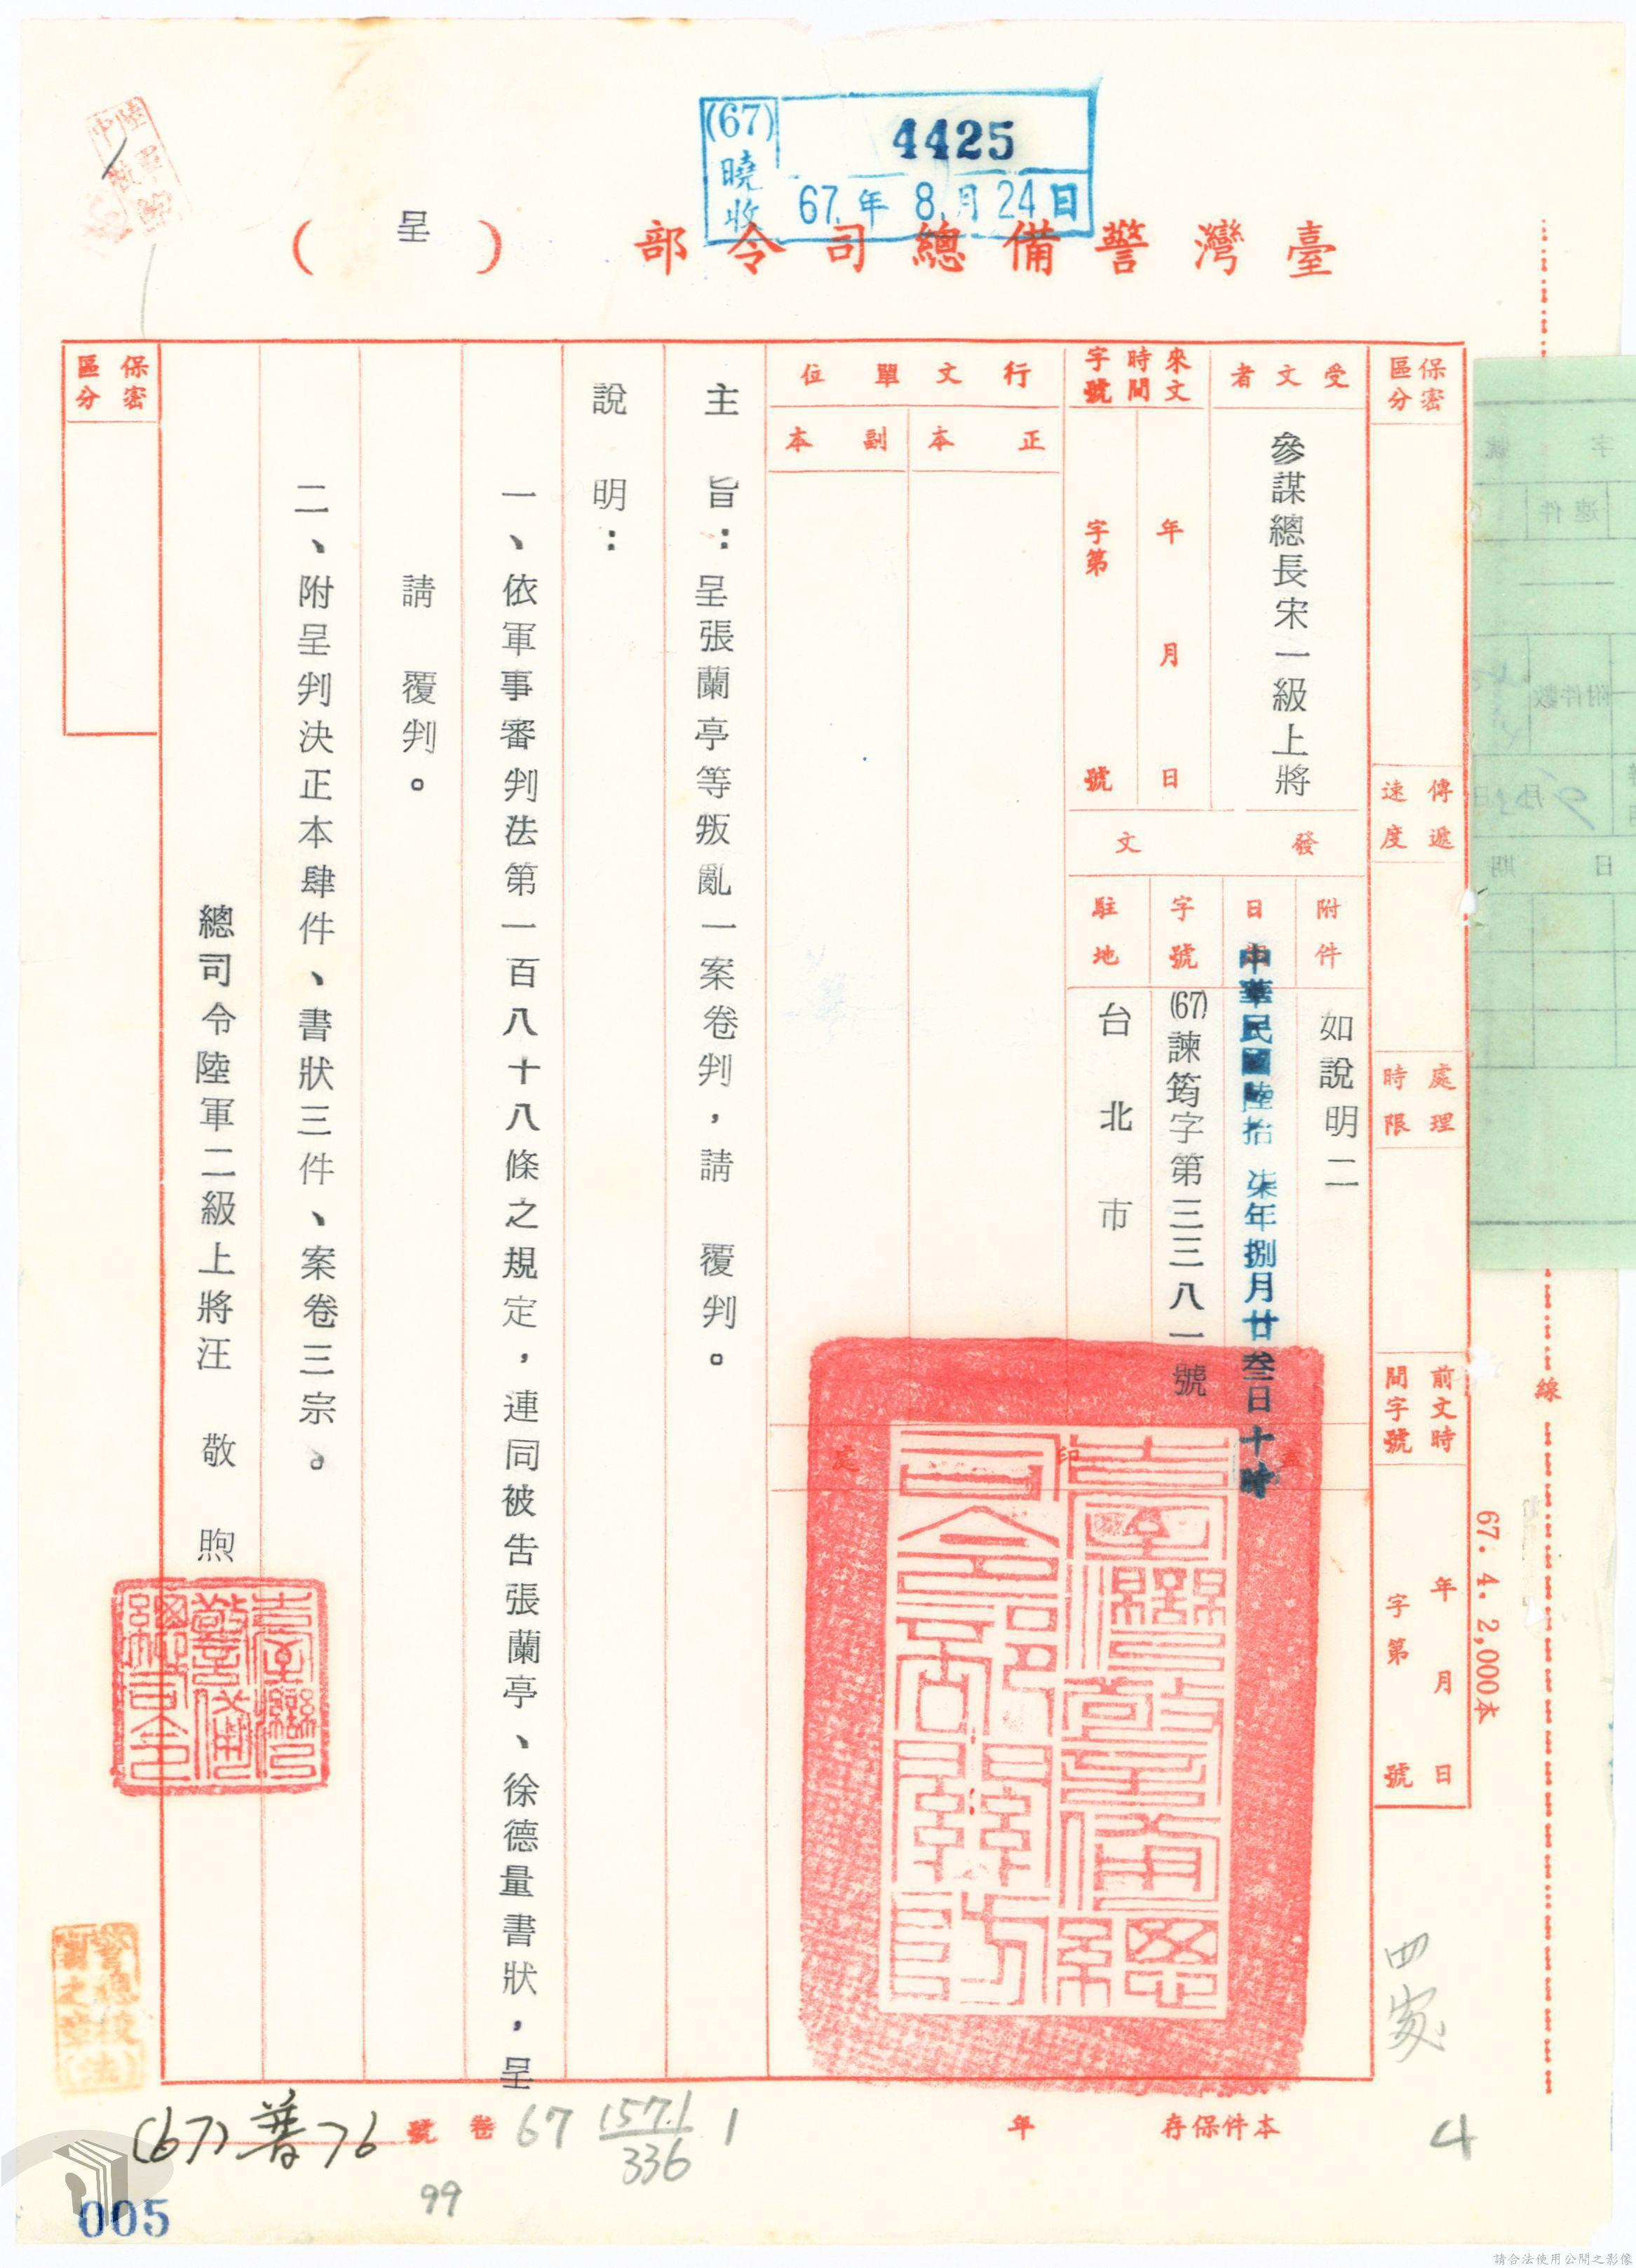 (67)
曉收
4425
67.年8.月24日
臺灣警備總司令部（呈）
保密區分
傳遞速度
處理時限
前文時間字號
年月日
字第號
受文者
參謀總長宋一級上將
來文時間字號
年月日
字第號
發文
附件
如說明二
日
中華民國陸拾柒年捌月廿叁日十時
字號
(67)諫筠字第三三八一號
駐地
台北市
行文單位
正本
副本
蓋印處
臺灣警備總司令部關防
主旨：呈張蘭亭等叛亂一案卷判，請　覆判。
說明：
一、依軍事審判法第一百八十八條之規定，連同被告張蘭亭、徐德量書狀，呈
請　覆判。
二、附呈判決正本肆件、書狀三件、案卷三宗。
總司令陸軍二級上將汪　敬　煦
臺灣警備總司令
保密區分
線
67. 4. 2,000本
本件保存　年
卷號
67 1571/336 1
(67)普76
99
4
005
請合法使用公開之影像